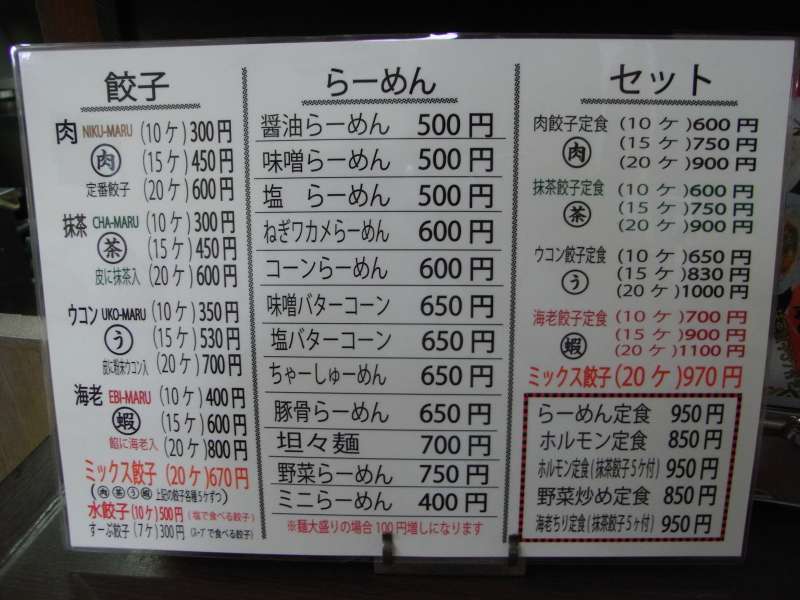 餃子
肉 NIKU-MARU (10ケ)300円
肉 (15ケ)450円
定番餃子 (20ケ)600円
抹茶 CHA-MARU (10ケ)300円
茶 (15ケ)450円
皮に抹茶入 (20ケ)600円
ウコン UKO-MARU (10ケ)350円
う (15ケ)530円
皮に粉末ウコン入 (20ケ)700円
海老 EBI-MARU (10ケ)400円
蝦 (15ケ)600円
餡に海老入 (20ケ)800円
ミックス餃子 (20ケ)670円
(肉茶う蝦 上記の餃子各種5ケずつ)
水餃子(10ケ)500円(塩で食べる餃子)
すーぷ餃子(7ケ)300円(スープで食べる餃子)
らーめん
醤油らーめん 500円
味噌らーめん 500円
塩 らーめん 500円
ねぎワカメらーめん 600円
コーンらーめん 600円
味噌バターコーン 650円
塩バターコーン 650円
ちゃーしゅーめん 650円
豚骨らーめん 650円
坦々麺 700円
野菜らーめん 750円
ミニらーめん 400円
※麺大盛りの場合100円増しになります
セット
肉餃子定食 (10ケ)600円
肉 (15ケ)750円
(20ケ)900円
抹茶餃子定食 (10ケ)600円
茶 (15ケ)750円
(20ケ)900円
ウコン餃子定食 (10ケ)650円
う (15ケ)830円
(20ケ)1000円
海老餃子定食 (10ケ)700円
蝦 (15ケ)900円
(20ケ)1100円
ミックス餃子(20ケ)970円
らーめん定食 950円
ホルモン定食 850円
ホルモン定食(抹茶餃子5ケ付)950円
野菜炒め定食 850円
海老ちり定食(抹茶餃子5ヶ付)950円